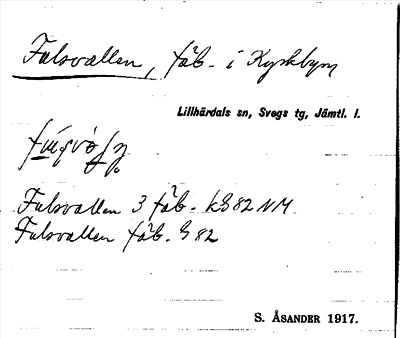 Fulsvallen, fäb. i Kyrkbyn
Lillhärdals sn, Svegs tg, Jämtl. l.
Fulsvallen 3 fäb. kG82 NM
Fulsvallen fäb. G82
S. ÅSANDER 1917.